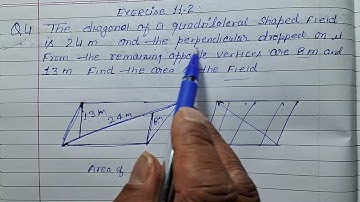 Exercise 11.2
Q4 The diagonal of a quadrilateral shaped field
is 24 m and the perpendicular dropped on it
from the remaining opposite vertices are 8 m and
13 m Find the area of the Field
13m
24m
8m
Area of